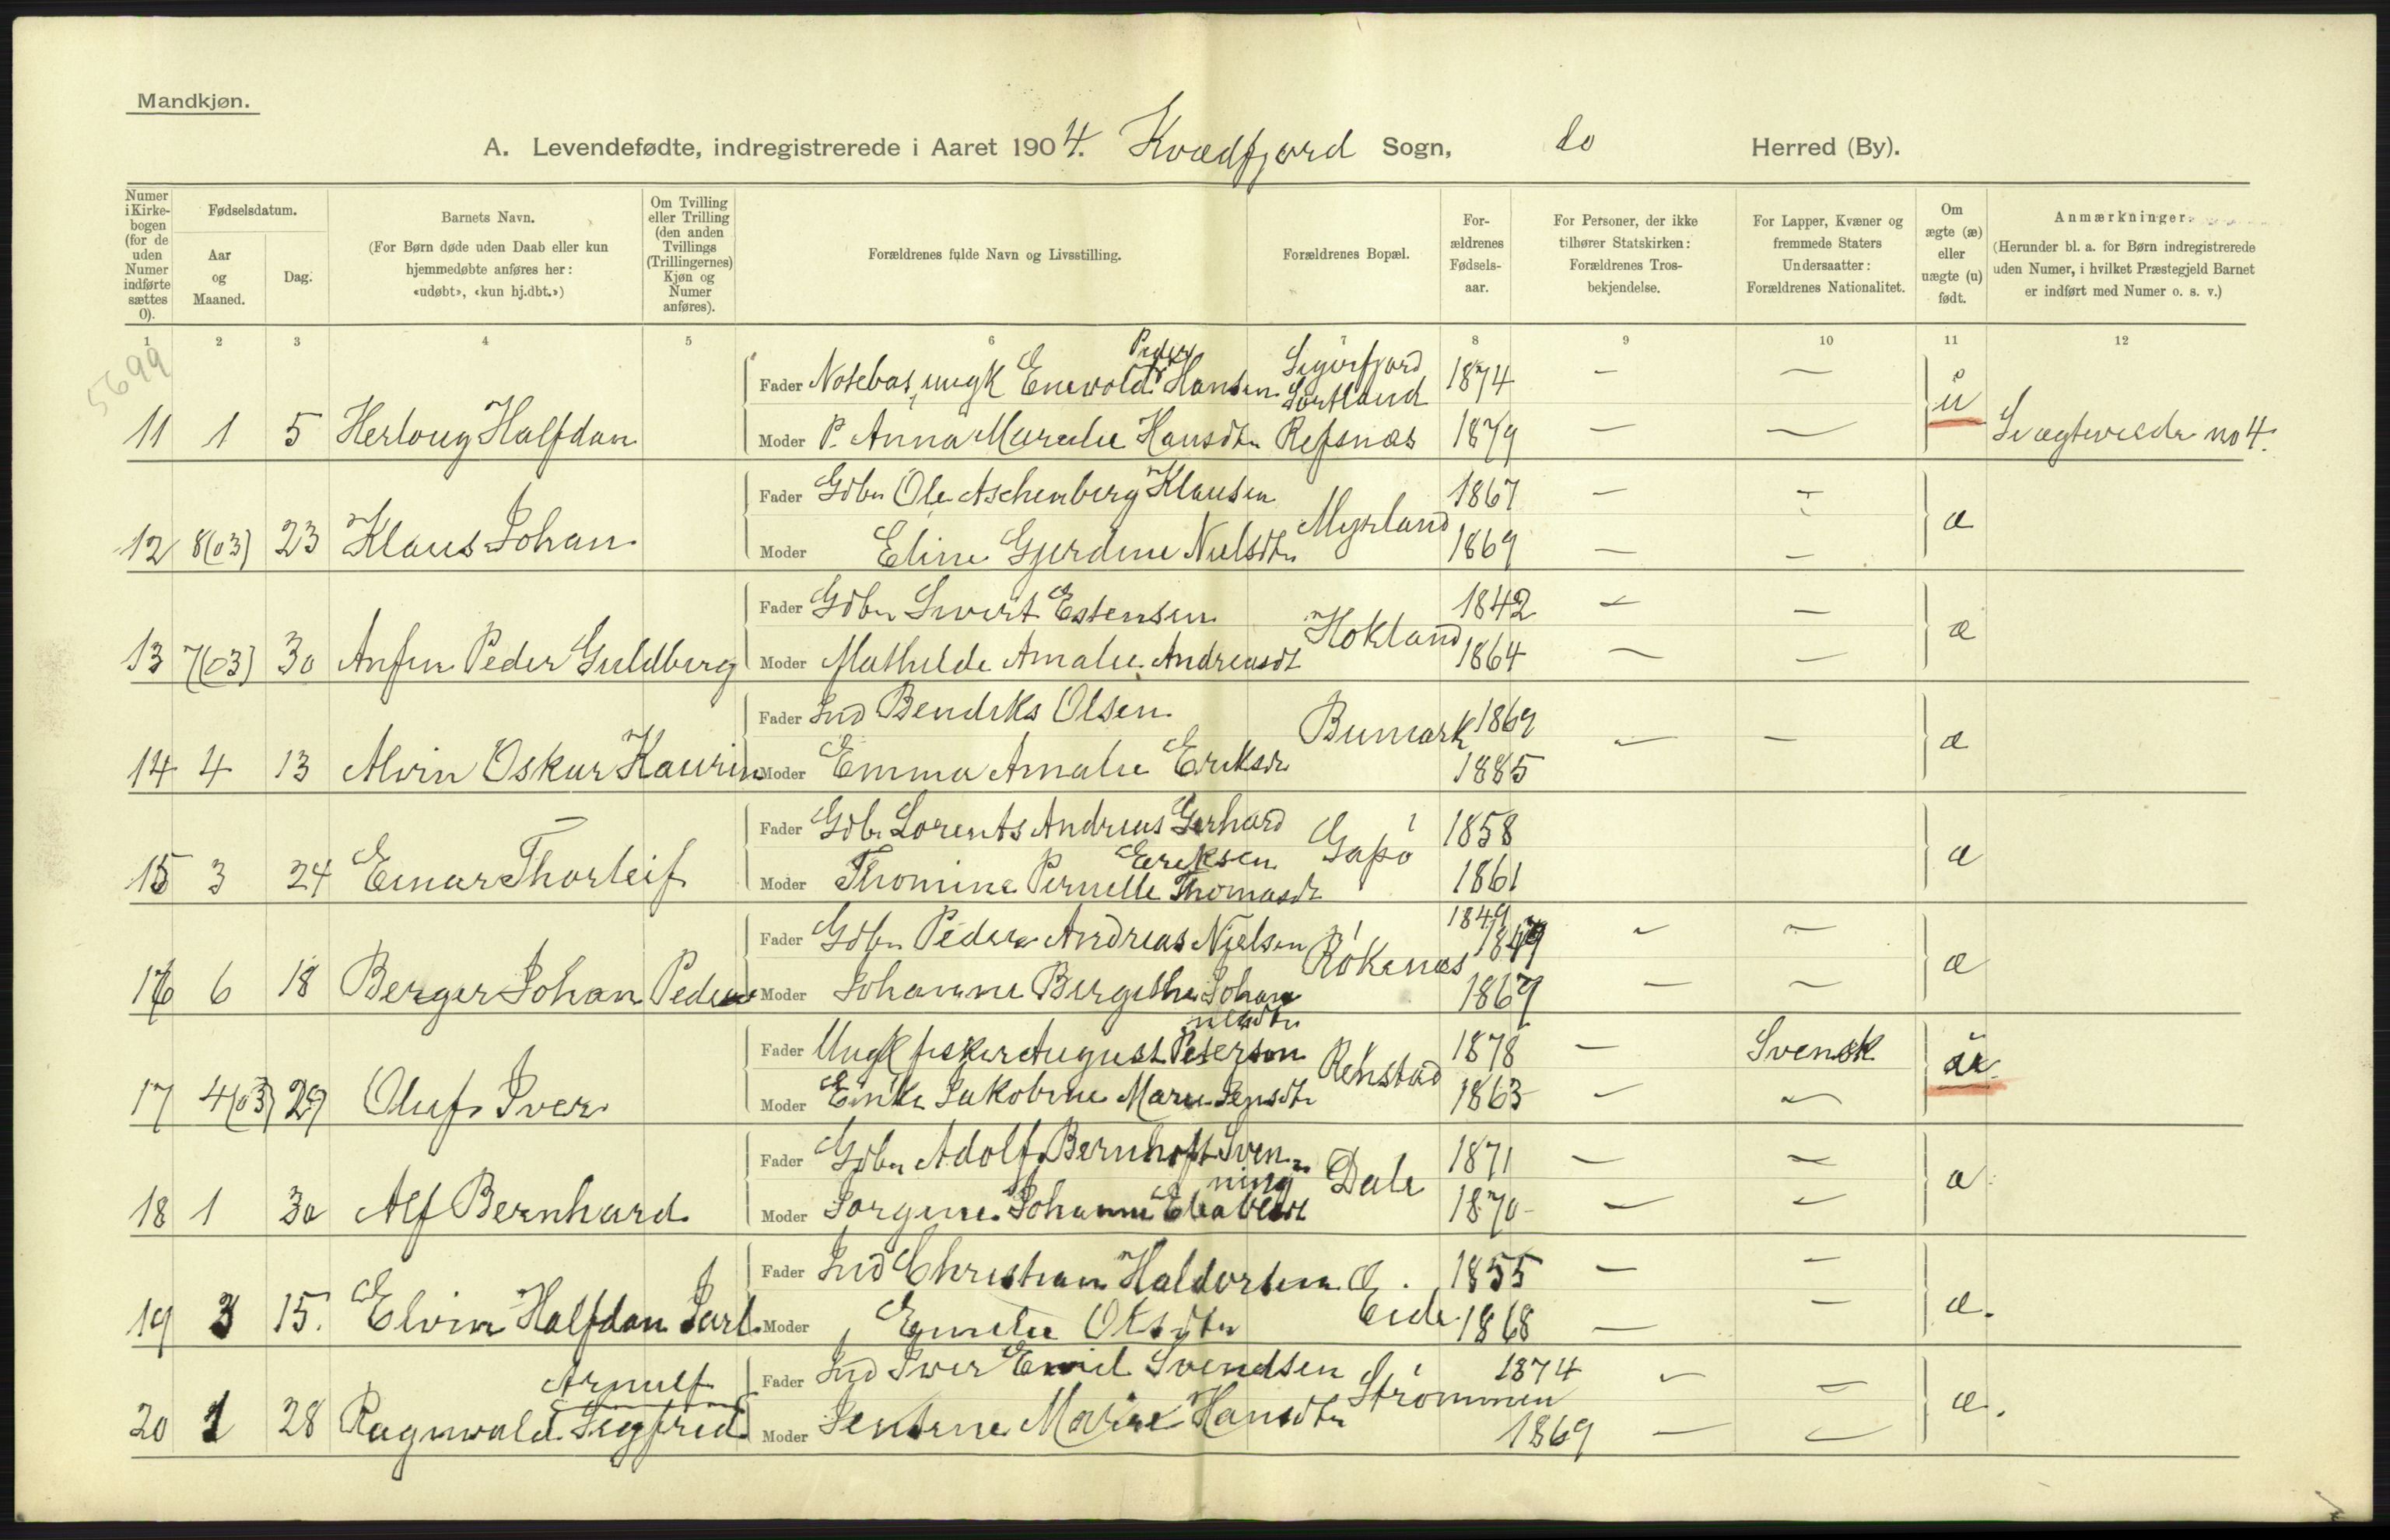 Mandkjøn.
A. Levendefødte, indregistrerede i Aaret 1904. Kvædfjord Sogn, do Herred (By).
Numer i Kirkebogen (for de uden Numer indførte sættes 0).
Fødselsdatum.
Aar og Maaned.
Dag.
Barnets Navn.
(For Børn døde uden Daab eller kun hjemmedøbte anføres her: «udøbt», «kun hj.dbt.»)
Om Tvilling eller Trilling (den anden Tvillings (Trillingernes) Kjøn og Numer anføres).
Forældrenes fulde Navn og Livsstilling.
Forældrenes Bopæl.
Forældrenes Fødselsaar.
For Personer, der ikke tilhører Statskirken: Forældrenes Trosbekjendelse.
For Lapper, Kvæner og fremmede Staters Undersaatter: Forældrenes Nationalitet.
Om ægte (æ) eller uægte (u) født.
Anmærkninger.
(Herunder bl. a. for Børn indregistrerede uden Numer, i hvilket Præstegjeld Barnet er indført med Numer o. s. v.)
1 2 3 4 5 6 7 8 9 10 11 12
5699
Peder Sigerfjord
Fader Notebas, ungk Enevold Hansen Sortland 1874 — —
11 1 5 Herloug Halfdan Moder P. Anna Maralie Hansdtr Refsnæs 1879 — — u no 4.
Fader Gdbr Ole Aschenberg Klausen Myrland 1867 — —
12 8(03) 23 Klaus Johan Moder Eline Gjerdine Nielsdtr 1869 — — æ
Fader Gdbr Sivert Estensen Hokland 1842 — —
13 7(03) 30 Anfin Peder Guldberg Moder Mathilde Amalie Andreasdt 1864 — — æ
Fader Ind Bendiks Olsen Bumark 1869
14 4 13 Alvin Oskar Kaurin Moder Emma Amalie Eriksdr 1885 — — æ
Fader Gdbr Lorents Andreas Gerhard Gapø 1858
Eriksen
15 3 24 Einar Thorleif Moder Thomine Pernelle Thomasdt 1861 æ
1849
Fader Gdbr Peder Andreas Nielsen Røkenæs 1849 — —
16 6 18 Berger Johan Peder Moder Johanne Bergithe Johan 1869 — — æ
nesdtr
Fader Ungk fisker August Peterson Rehstad 1878 — Svensk
17 4(03) 29 Oluf Iver Moder Enke Jakobine Marie Jensdtr 1863 — — u
Fader Gdbr Adolf Bernhoft Sven- Dale 1871 — —
ning
18 1 30 Alf Bernhard Moder Jorgine Johanne 1870 — — æ
Fader Ind Christian Haldorsen 1855 — —
19 3 15. Elvin Halfdan Jarl Moder Emelie Olsdtr Eide 1868 — — æ.
Arnulf
Fader Ind Iver Emil Svendsen Strømmen 1874 — —
20 1 28 Ragnvald Sigfred Moder Jentine Marie Hansdtr 1869 — — æ.